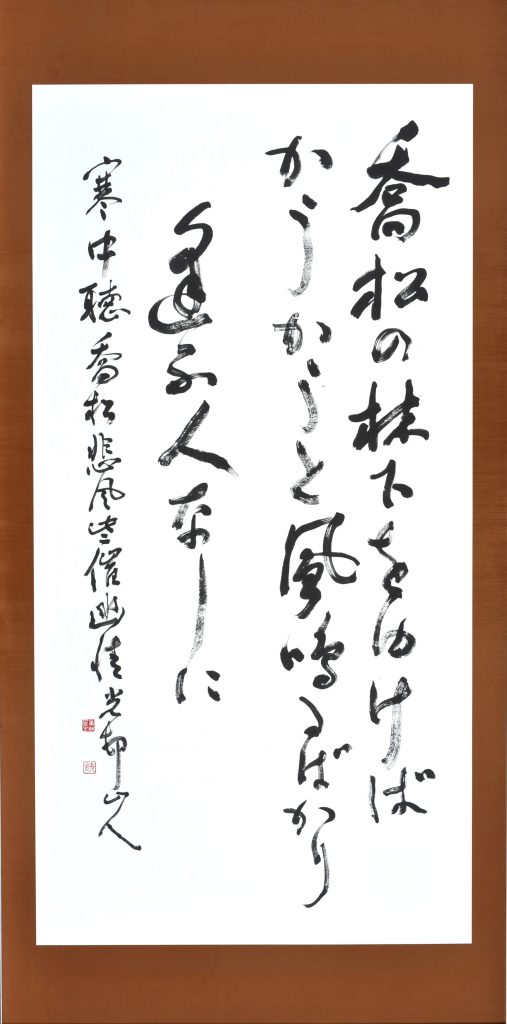 喬松の林下をゆけば
かうかうと風鳴るばかり
逢ふ人なしに
寒中聴喬松悲風催幽情光邨山人